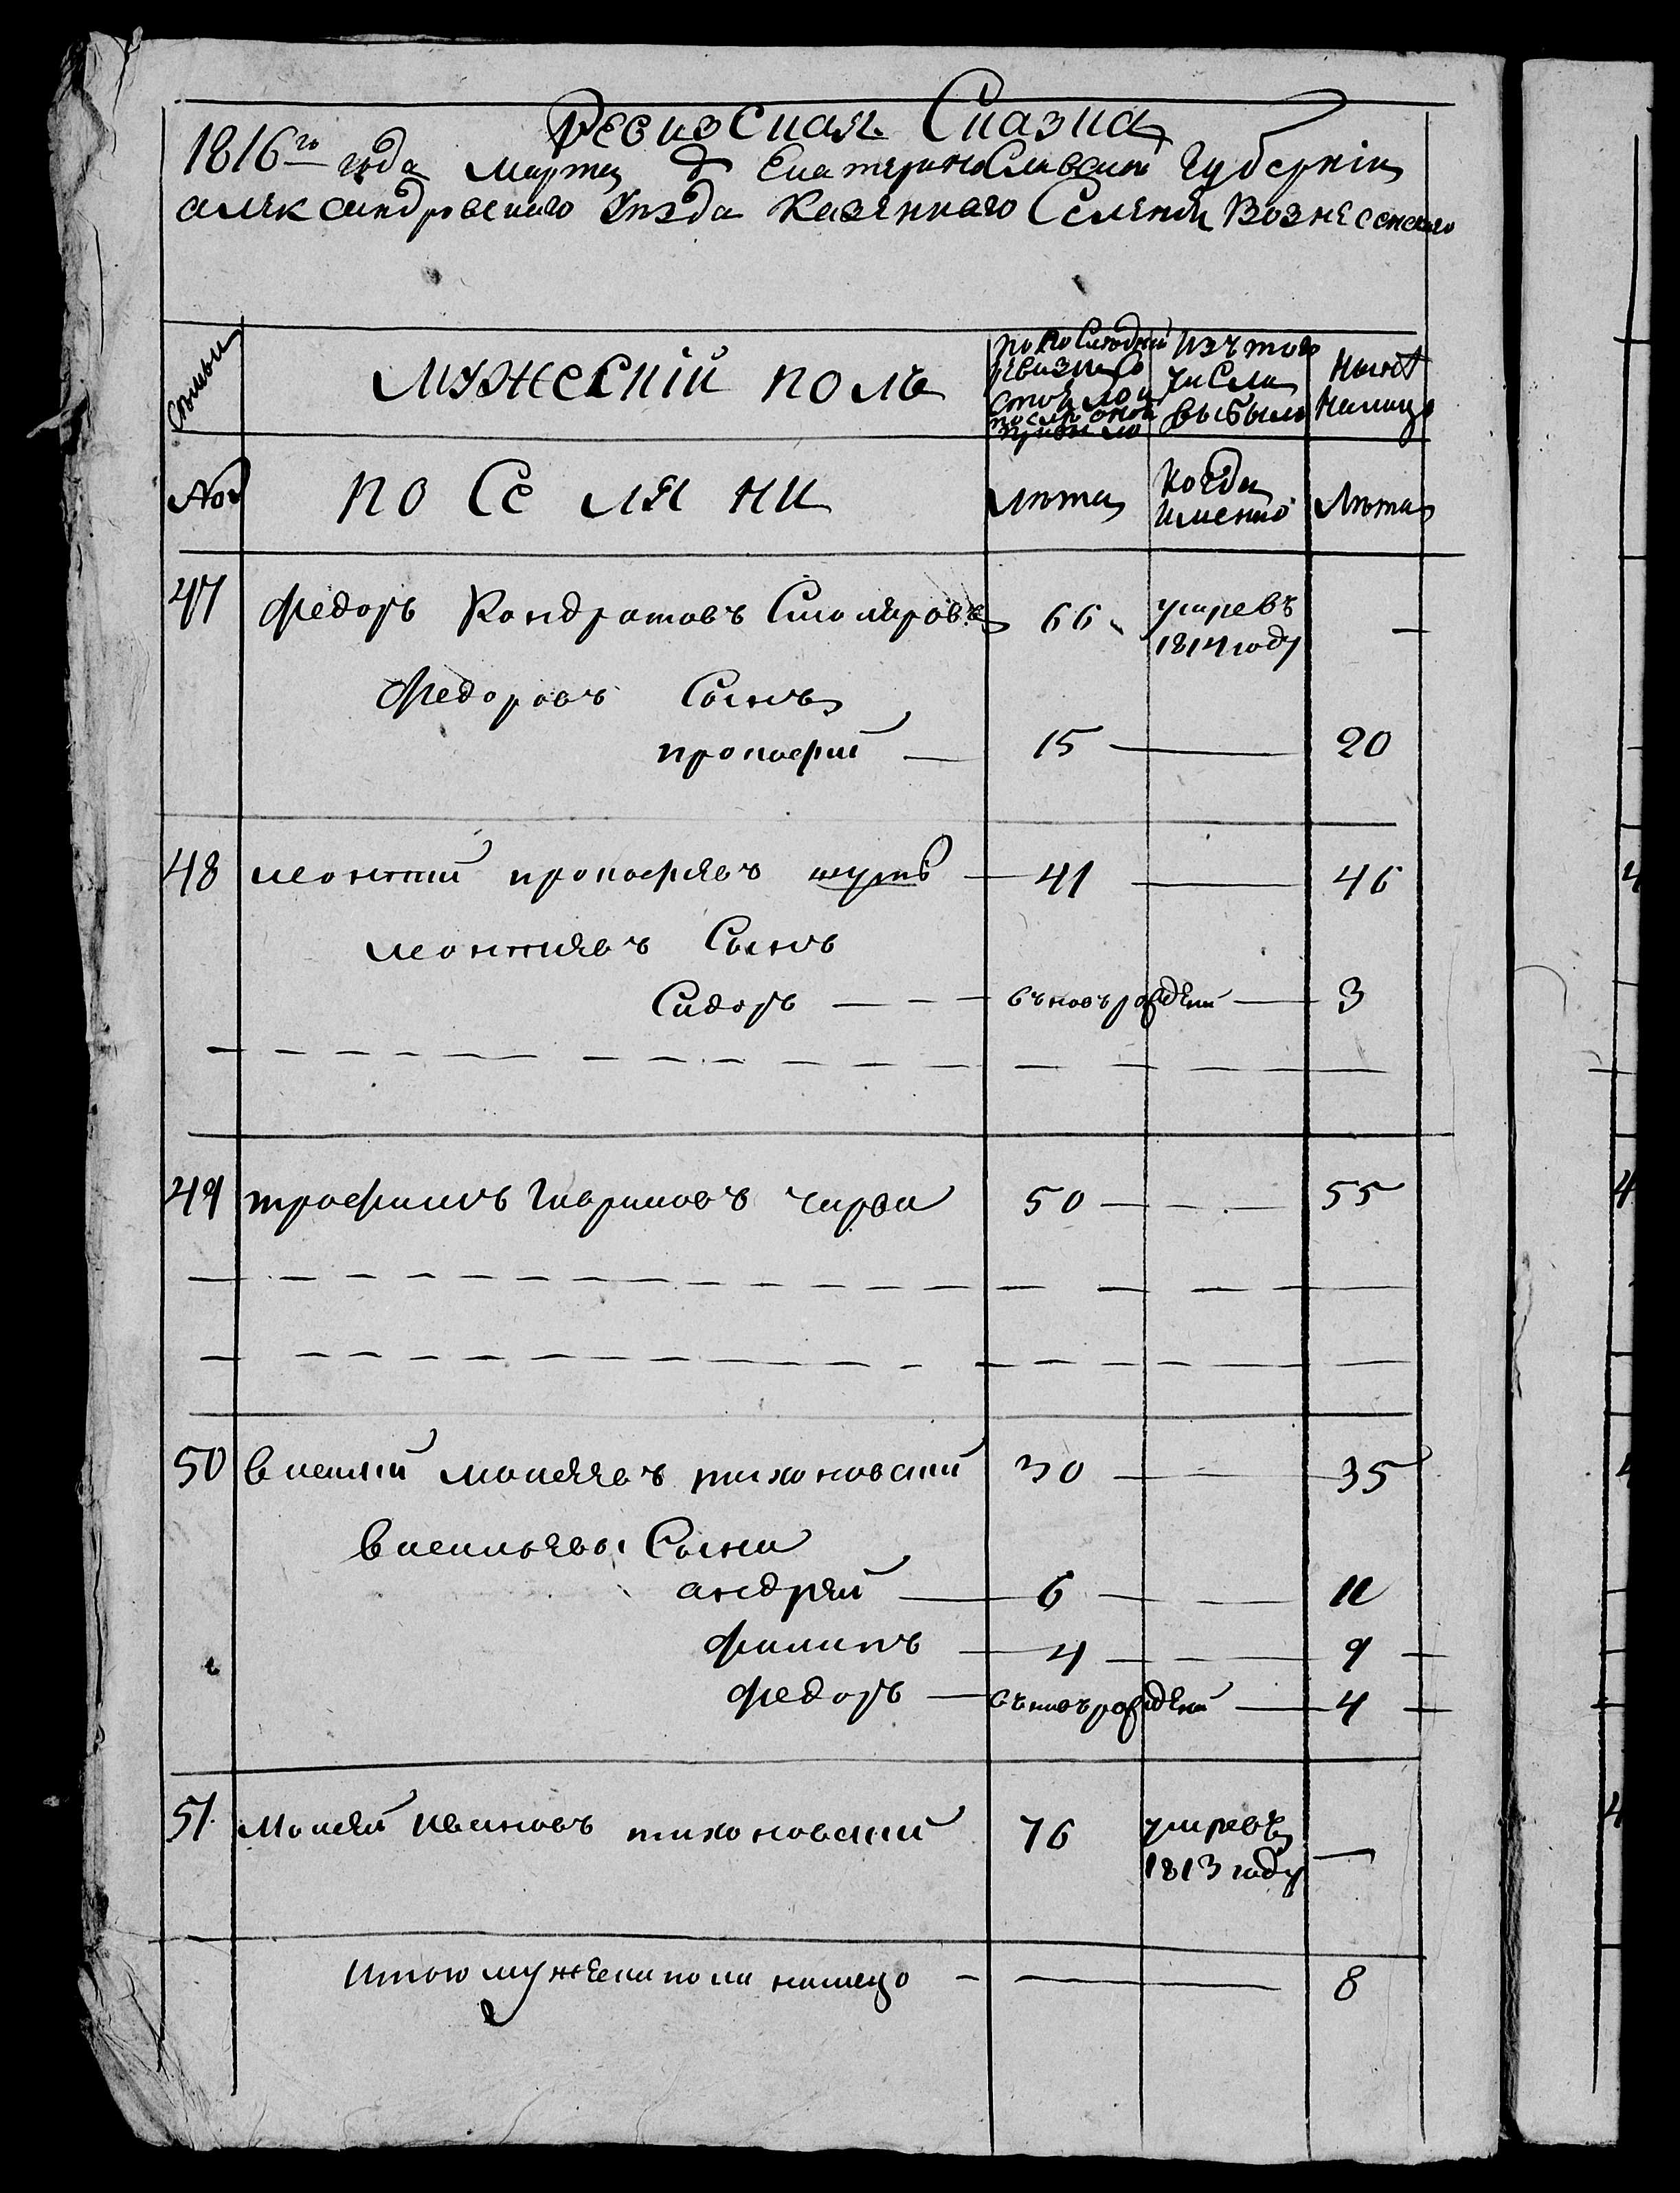 Ревизская Сказка
1816го года марта д Екатеринославской Губернiи
александровскаго Уѣзда Казеннаго Селенiя Вознесенского
Мужескiй полъ
по последней ревизiи состояло и после оной прибыло
Изъ того числа выбыло
Ныне на лицо
№
поселяни
лѣта
Когда именно
Лѣта
47 Федоръ Кондратовъ Столяровъ 66 умревъ 1814 году —
Федоровъ Сынъ
прокофий — 15 — 20
48 леонтий прокофяевъ 41 — 46
леонтяевъ Сынъ
Сидоръ — — — въновърождений — 3
49 трофимъ Гавриловъ чирва 50 — — 55
50 василий мосеяевъ тихоновский 30 — — 35
васильявы Сыни
андрей — 6 — — 11
филипъ — 4 — — 9
федоръ — въновърождений — 4
51. Мосей Ивановъ тихоновский 76 умревъ 1813 году —
Итого мужеска пола налицо — — 8